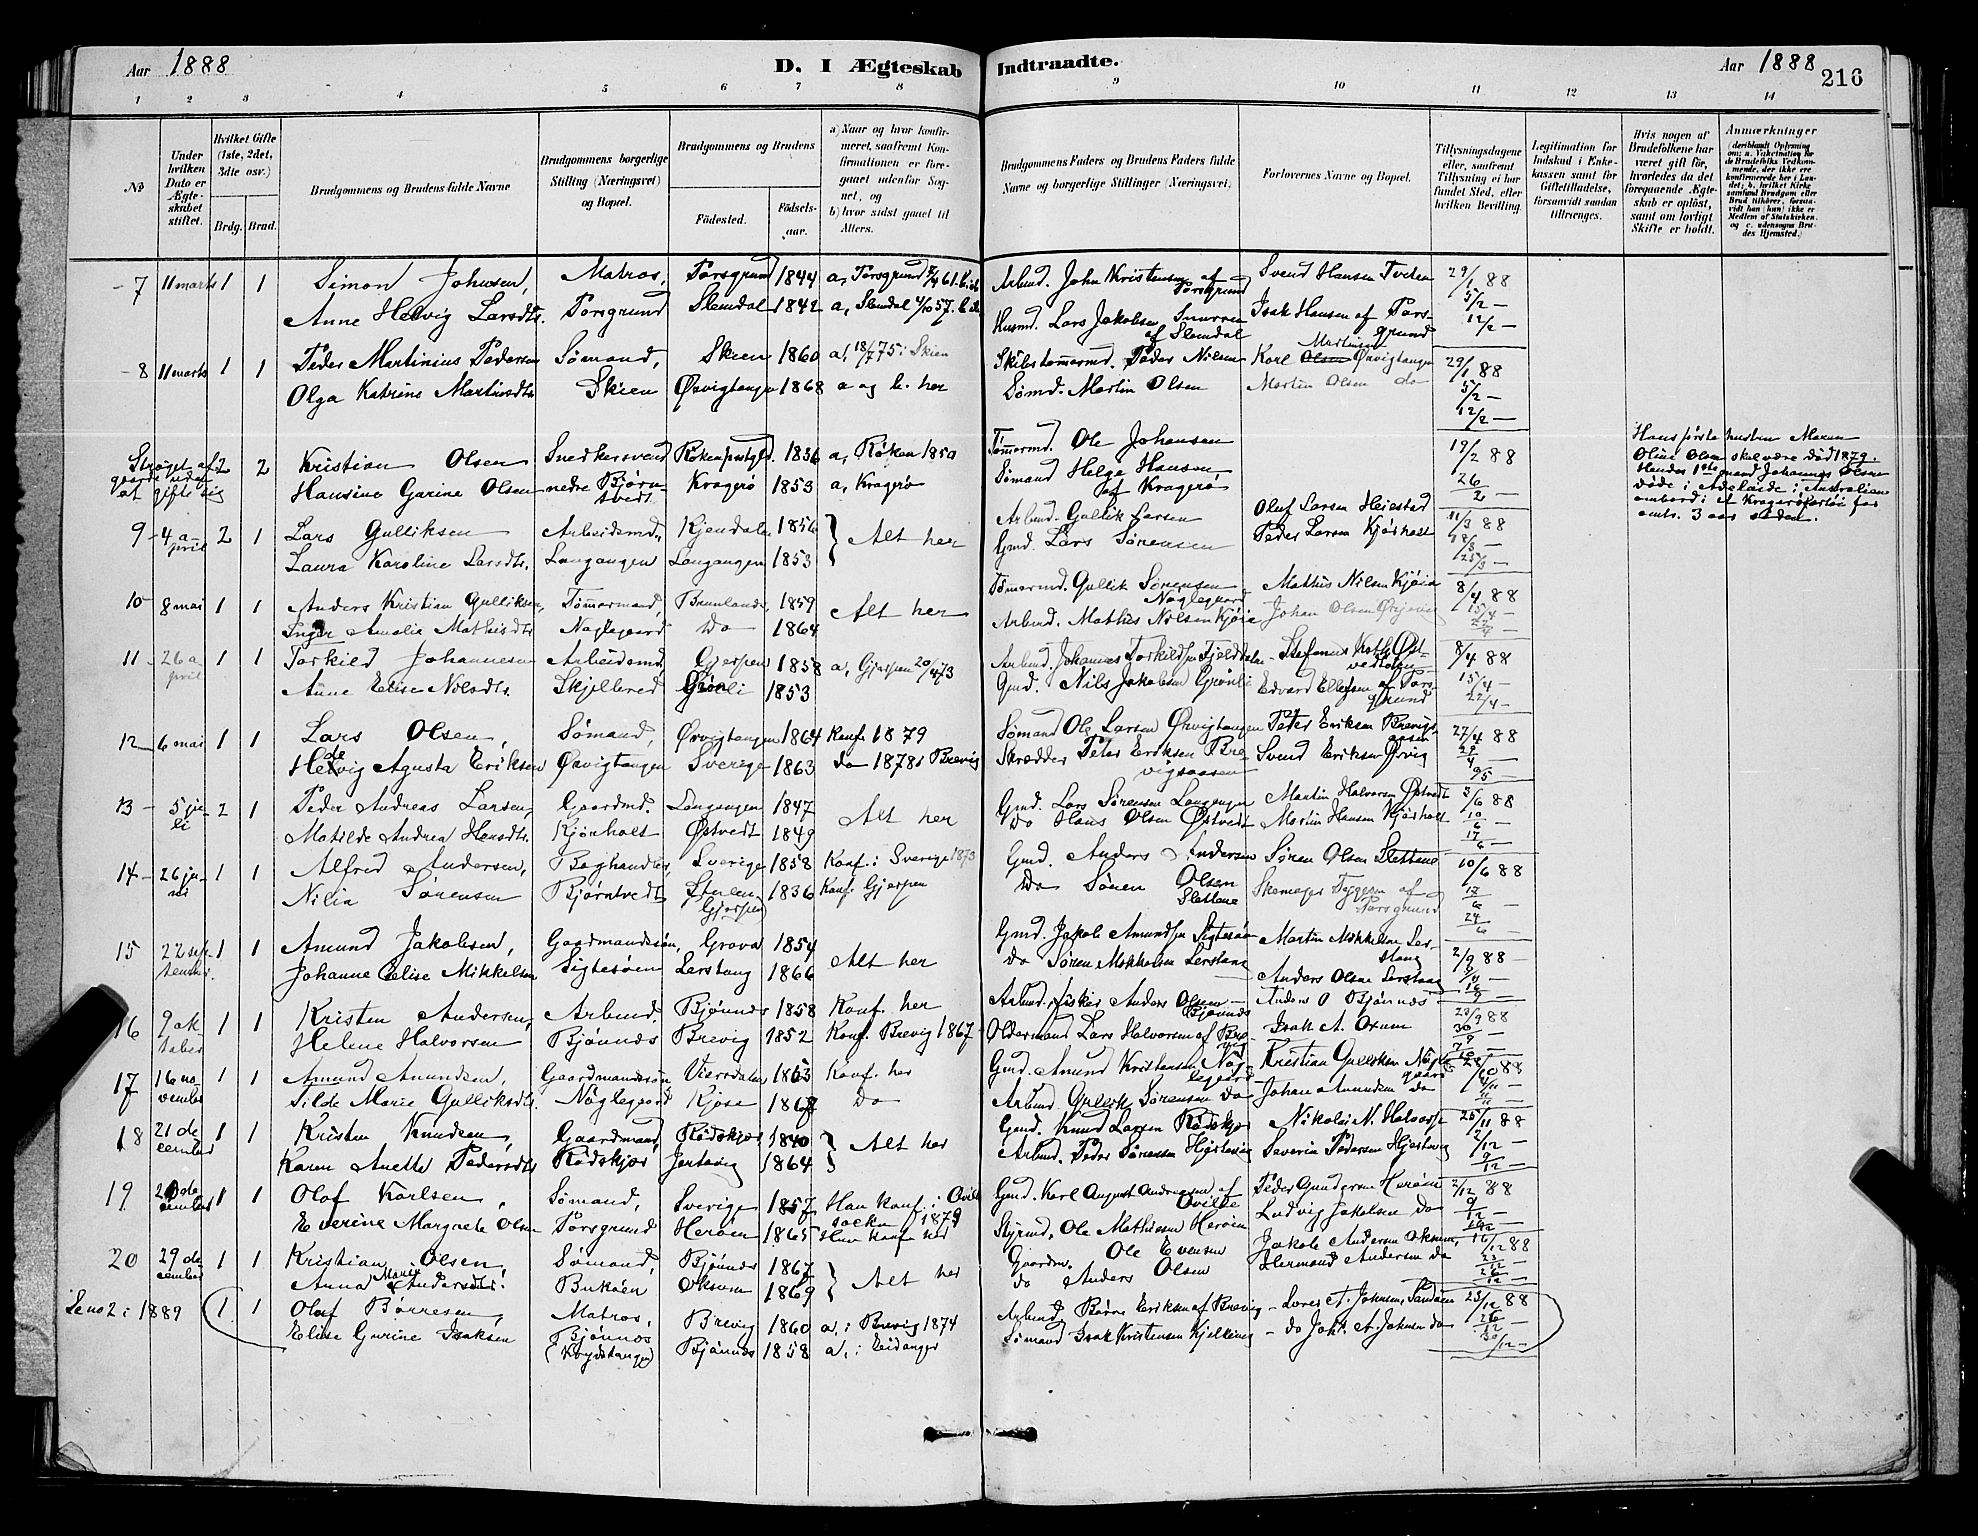 Aar 1888 D. I Ægteskab Indtraadte. Aar 1888
216
1 2 3 4 5 6 7 8 9 10 11 12 13 14
№
Under hvilken Dato er Ægteskabet stiftet.
Hvilket Gifte (1ste, 2det, 3dte osv.)
Brdg. Brud.
Brudgommens og Brudens fulde Navne
Brudgommens borgerlige Stilling (Næringsvei) og Bopæl.
Brudgommens og Brudens
Fødested. Fødselsaar.
a) Naar og hvor konfirmeret, saafremt Konfirmationen er foregaaet udenfor Sognet, og
b) hvor sidst gaaet til Alters.
Brudgommens Faders og Brudens Faders fulde Navne og borgerlige Stillinger (Næringsvei).
Forlovernes Navne og Bopæl.
Tillysningsdagene eller, saafremt Tillysning ei har fundet Sted, efter hvilken Bevilling.
Legitimation for Indskud i Enkekassen samt for Giftetilladelse, forsaavidt saadan tiltrænges.
Hvis nogen af Brudefolkene har været gift før, hvorledes da det foregaaende Ægteskab er opløst, samt om lovligt Skifte er holdt.
Anmærkninger
7 11 marts 1 1 Simon Johnsen, Matros, Porsgrund 1844 a, Porsgrund 61. Arbmd. John Kristensen af Porsgrund Svend Hansen Tveten 29/1 88
Anne Helvig Larsdtr. Porsgrund Slemdal 1842 a, Slemdal 4/10 57. Husmd. Lars Jakobsen af Slemdal Isak Hansen af Porsgrund 5/2 —
12/2 —
8 11 marts 1 1 Peder Martinius Pedersen Sømand, Skien 1860 a, 18/7 75 i Skien Skibstømmermd. Peder Nilsen Karl Olsen Martinsen Ørvigtangen 29/1 88
Olga Katrine Martinsdtr. Skien Ørvigtangen 1868 a og b. her Sømd. Martin Olsen Martin Olsen do 5/2 —
12/2 —
Strøget af 2 2 Kristian Olsen Snedkersvend Røken prstgld. 1836 a, Røken 1850 Tømmermd. Ole Johansen 19/2 88
at gifte sig Hansine Garine Olsen nedre Bjørntvedt Kragerø 1853 a, Kragerø Sømand Helge Hansen af Kragerø 26/2 —
Hans første hustru Maren
Oline Olsen skal være død 1879.
Hendes 1ste mand Johannes Olsen
døde i Adelaide i Australien
ombord i et Kragerøfartøi for
omtr. 3 aar siden.
9 4 april 2 1 Lars Gulliksen Arbeidsmd., Kjendalen 1856 Alt her Arbmd. Gullik Larsen Oluf Larsen Heiestad 11/3 88
Laura Karoline Larsdtr. Langangen Langangen 1853 Gmd. Lars Sørensen Peder Larsen Kjørholt 18/3 —
25/3 —
10 8 mai 1 1 Anders Kristian Gulliksen, Tømmermand, Brunlanes 1859 Alt her Tømmermd. Gullik Sørensen Nøglegaard Mathis Nilsen Kjøia 8/4 88
Inger Amalia Mathisdtr. Nøglegaard Do 1864 Arbmd. Mathis Nilsen Kjøia Johan Olsen 15/4 —
22/4 —
11 26 april 1 1 Torkild Johannesen Arbeidsmd, Gjerpen 1858 a, Gjerpen 20/4 73 Arbmd. Johannes Torkildsen Fjelddalen 8/4 88
Anne Elise Nilsdtr. Skjelbered Grønli 1853 Gmd. Nils Jakobsen Grønli Edvard Ellefsen af Porsgrund 15/4 —
22/4 —
12 6 mai 1 1 Lars Olsen, Sømand, Ørvigtangen 1864 Konf. 1879 Sømand Ole Larsen Ørvigtangen Peter Eriksen Brevigsaasen 27/4 88
Hedvig Agusta Eriksen Ørvigtangen Sverige 1863 do 1878 i Brevig Skrædder Peter Eriksen Brevigsaasen Svend Eriksen Ørvig 29/4
9/5 —
13 5 juli 2 1 Peder Andreas Larsen, Gaardmd. Langangen 1847 Alt her Gmd. Lars Sørensen Langangen Martin Halvorsen Østvedt 3/6 88
Matilde Andrea Hansdtr. Kjørholt Østvedt 1849 Do Hans Olsen Østvedt Martin Hansen Kjørholt 10/6 —
17/6 —
14 26 juni 1 1 Alfred Andersen, Baghandler, Sverige 1858 Konf. i Sverige 1873 Gmd. Anders Andersen Søren Olsen Slettene 10/6 88
Nilia Sørensen Bjørntvedt Gjerpen 1836 Konf. Gjerpen Do Søren Olsen Slettene Skomager af Porsgrund 17/6 —
24/6 —
15 22 september 1 1 Amund Jakobsen, Gaardmandssøn, Grava 1854 Alt her Gmd. Jakob Amundsen Sigtesøen Martin Mikkelsen Lerstang 2/9 88
Johanne Elise Mikkelsen Sigtesøen Lerstang 1866 Do Søren Mikkelsen Lerstang Anders Olsen Lerstang 9/9 —
16/9 —
16 9 oktober 1 1 Kristen Andersen, Arbmd. Bjønnes 1858 Konf. her Arbmd. Fisker Anders Olsen Bjønnes Anders O Bjønnes 23/9 88
Helene Halvorsen Bjønnes Brevig 1852 Konf. Brevig 1867 Oldermand Lars Halvorsen af Brevig Isak A. Oxum 30/9 —
7/10 —
17 16 november 1 1 Amund Amundsen, Gaardmandssøn, Viersdalen 1863 Konf. her Gmd. Amund Kristensen Nøglegaard Kristian Gulliksen Nøglegaard 28/10 88
Silde Marie Gulliksdtr. Nøglegaard Kjøse 1867 Do Arbmd Gullik Sørensen do Johan Amundsen do 4/11 —
11/11 —
18 21 december 1 1 Kristen Knudsen, Gaardmand, Rødskjær 1840 Alt her Gmd. Knud Larsen Rødskjær Nikolai N. 25/11 88
Karen Anette Pedersdtr. Rødskjær 1864 Arbmd. Peder Sørensen Severin Pedersen 2/12 —
9/12 —
19 december 1 1 Olaf Karlsen, Sømand, Sverige 1857 Han konf. i 1879 Gmd. Karl August Andreasen af Peder Gundersen Herøen 2/12 88
Everine Margrete Olsen Porsgrund Herøen 1865 Hun konf. her Styrmd. Ole Mathisen Herøen Ludvig Jakobsen do 9/12 —
16/12 —
20 29 december 1 1 Kristian Olsen, Sømand, Bjønnes 1867 Alt her Gaardm. Ole Evensen Jakob Andersen Oksum, 16/12 88
Anna Marie Andersdtr. Bukøen Oksum 1869 do Anders Olsen Hermand Andersen do 23/12 —
26/12 —
Se no 2 i 1889 1 1 Olaf Børresen, Matros, Brevig 1860 a, i Brevig 1874 Arbmd Børre Eriksen af Brevig 23/12 88
Elise Gurine Isaksen Bjønnes Bjønnes 1858 a, i Eidanger Sømand Isak Kristensen 26/12 —
30/12 —